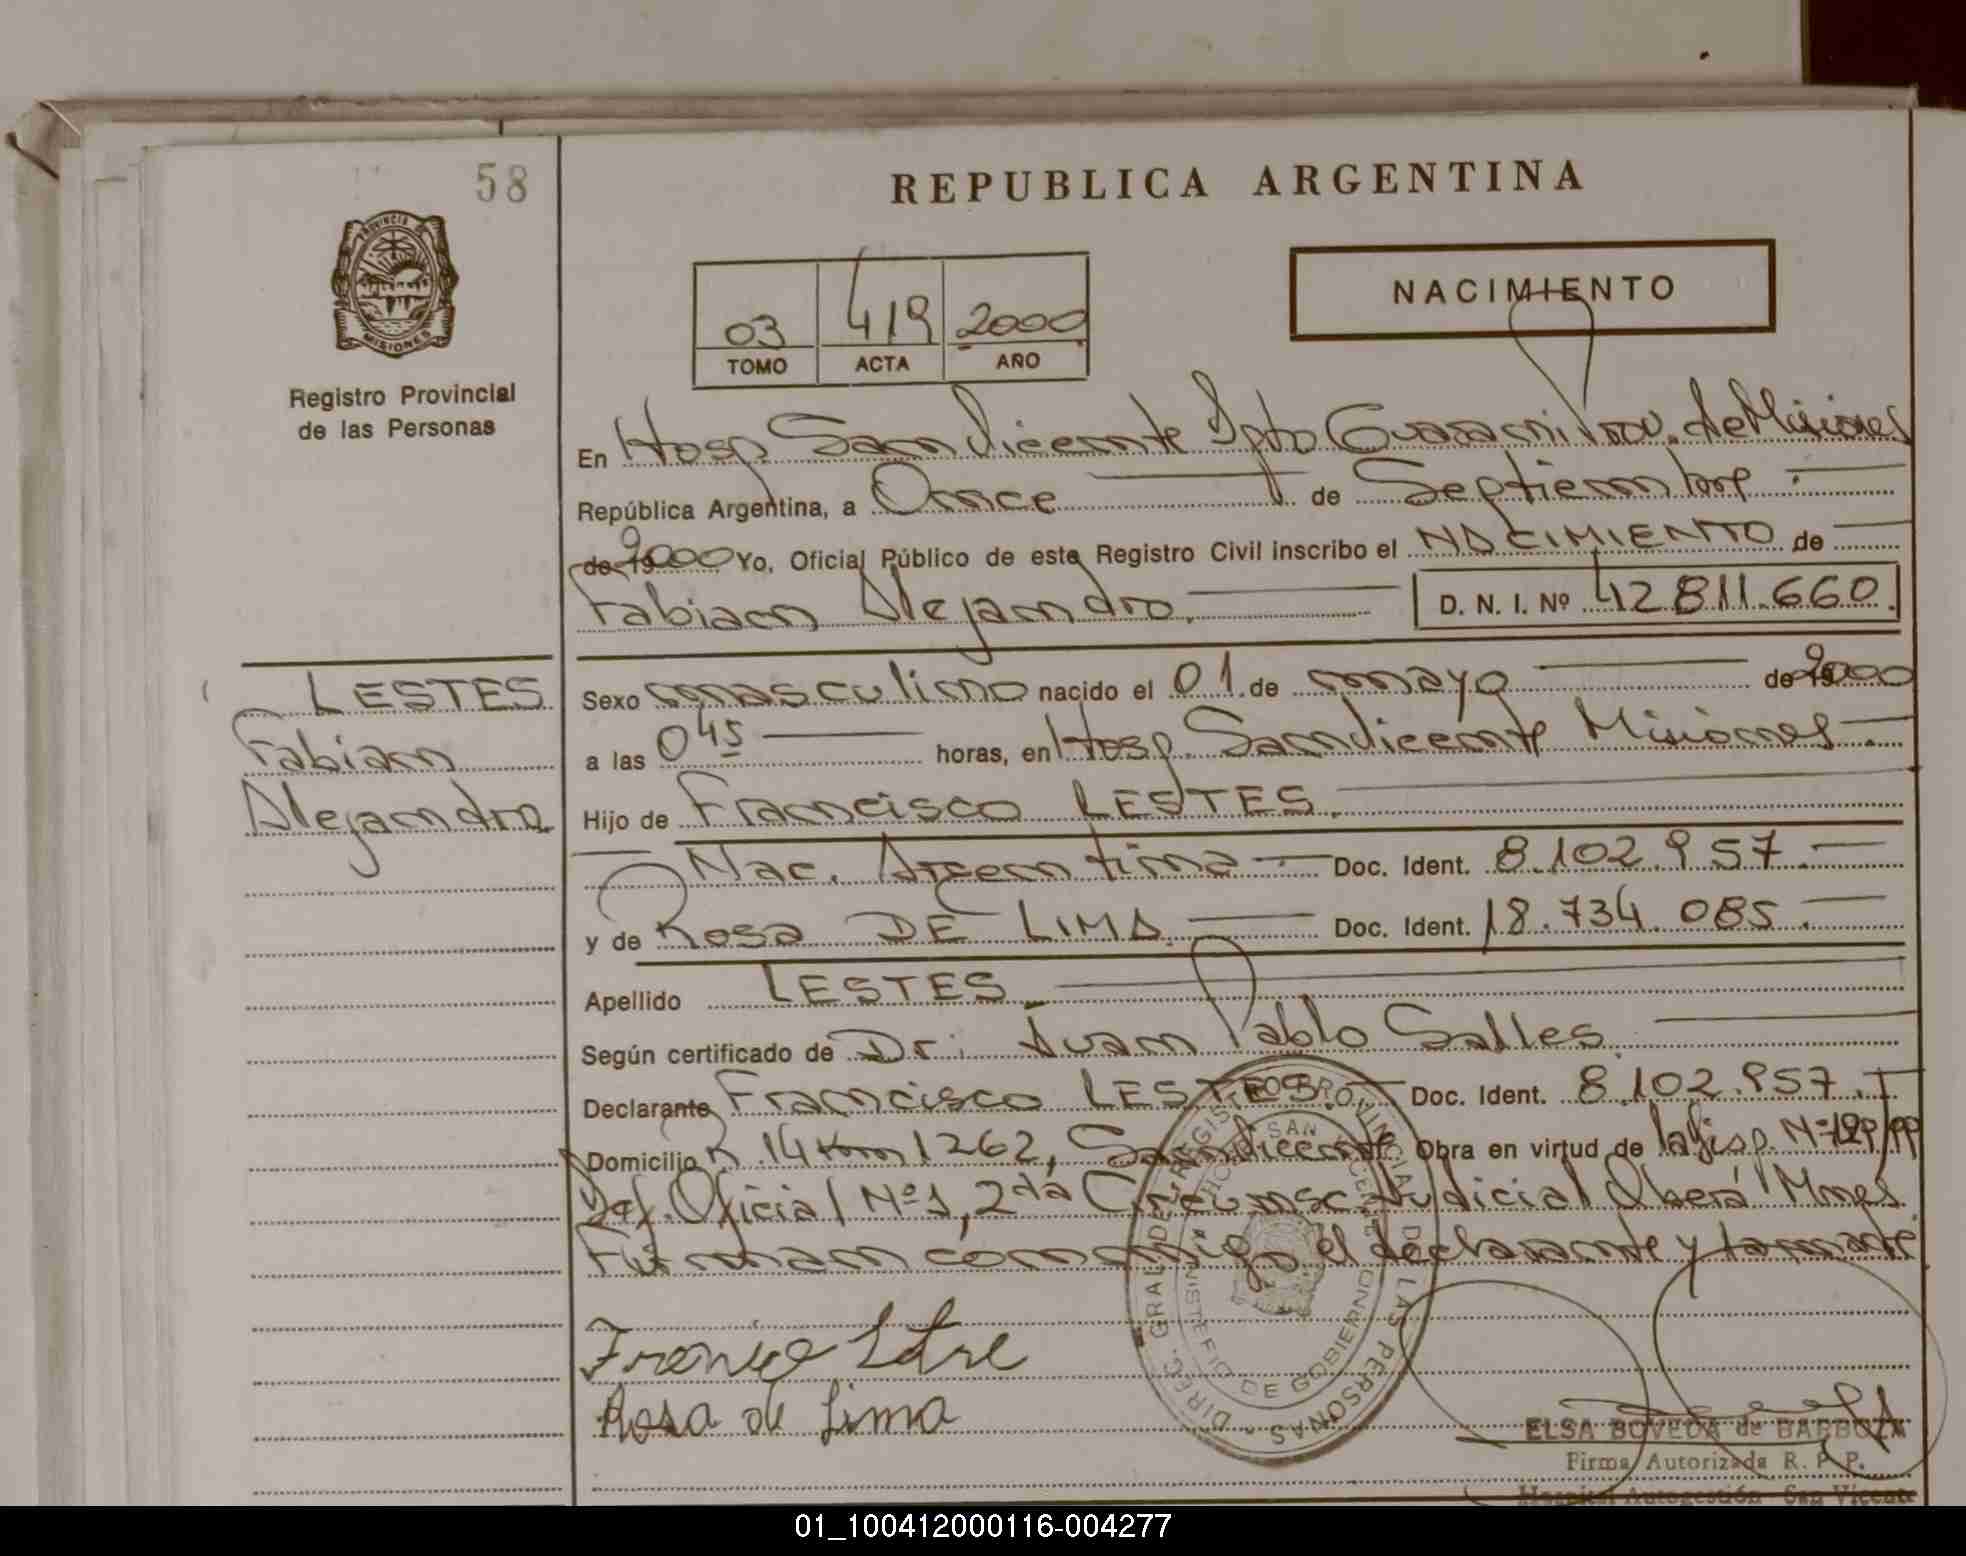 58
REPUBLICA ARGENTINA
PROVINCIA
MISIONES
Registro Provincial
de las Personas
03 419 2000
TOMO ACTA AÑO
NACIMIENTO
En Hosp San Vicente Dpto Guarani Prov. de Misiones
República Argentina, a Once de Septiembre
de 19 2000 Yo, Oficial Público de este Registro Civil inscribo el NACIMIENTO de
Fabian Alejandro. D. N. I. Nº 42811.660.
LESTES
Fabian
Alejandro
Sexo masculino nacido el 01 de mayo de 19 2000
a las 0 45 horas, en Hosp. San Vicente Misiones
Hijo de Francisco LESTES.
Nac. Argentina Doc. Ident. 8.102.957.
y de Rosa DE LIMA Doc. Ident. 18.734.085.
Apellido LESTES
Según certificado de Dr. Juan Pablo Salles.
Declarante Francisco LESTES. Doc. Ident. 8.102.957.
Domicilio R. 14 Km 1262, San Vicente Obra en virtud de la Disp. Nº
Def. Oficial Nº 1, 2da Circunsc. Judicial Oberá Mnes
Firman conmigo el declarante y
DIREC. GRAL. DEL REGISTRO PROVINCIAL DE LAS PERSONAS
MINISTERIO DE GOBIERNO
HOSP. SAN VICENTE
Rosa de Lima
ELSA BOVEDA de BARBOZA
Firma Autorizada R. P. P.
Hospital Autogestión San Vicente
01_100412000116-004277